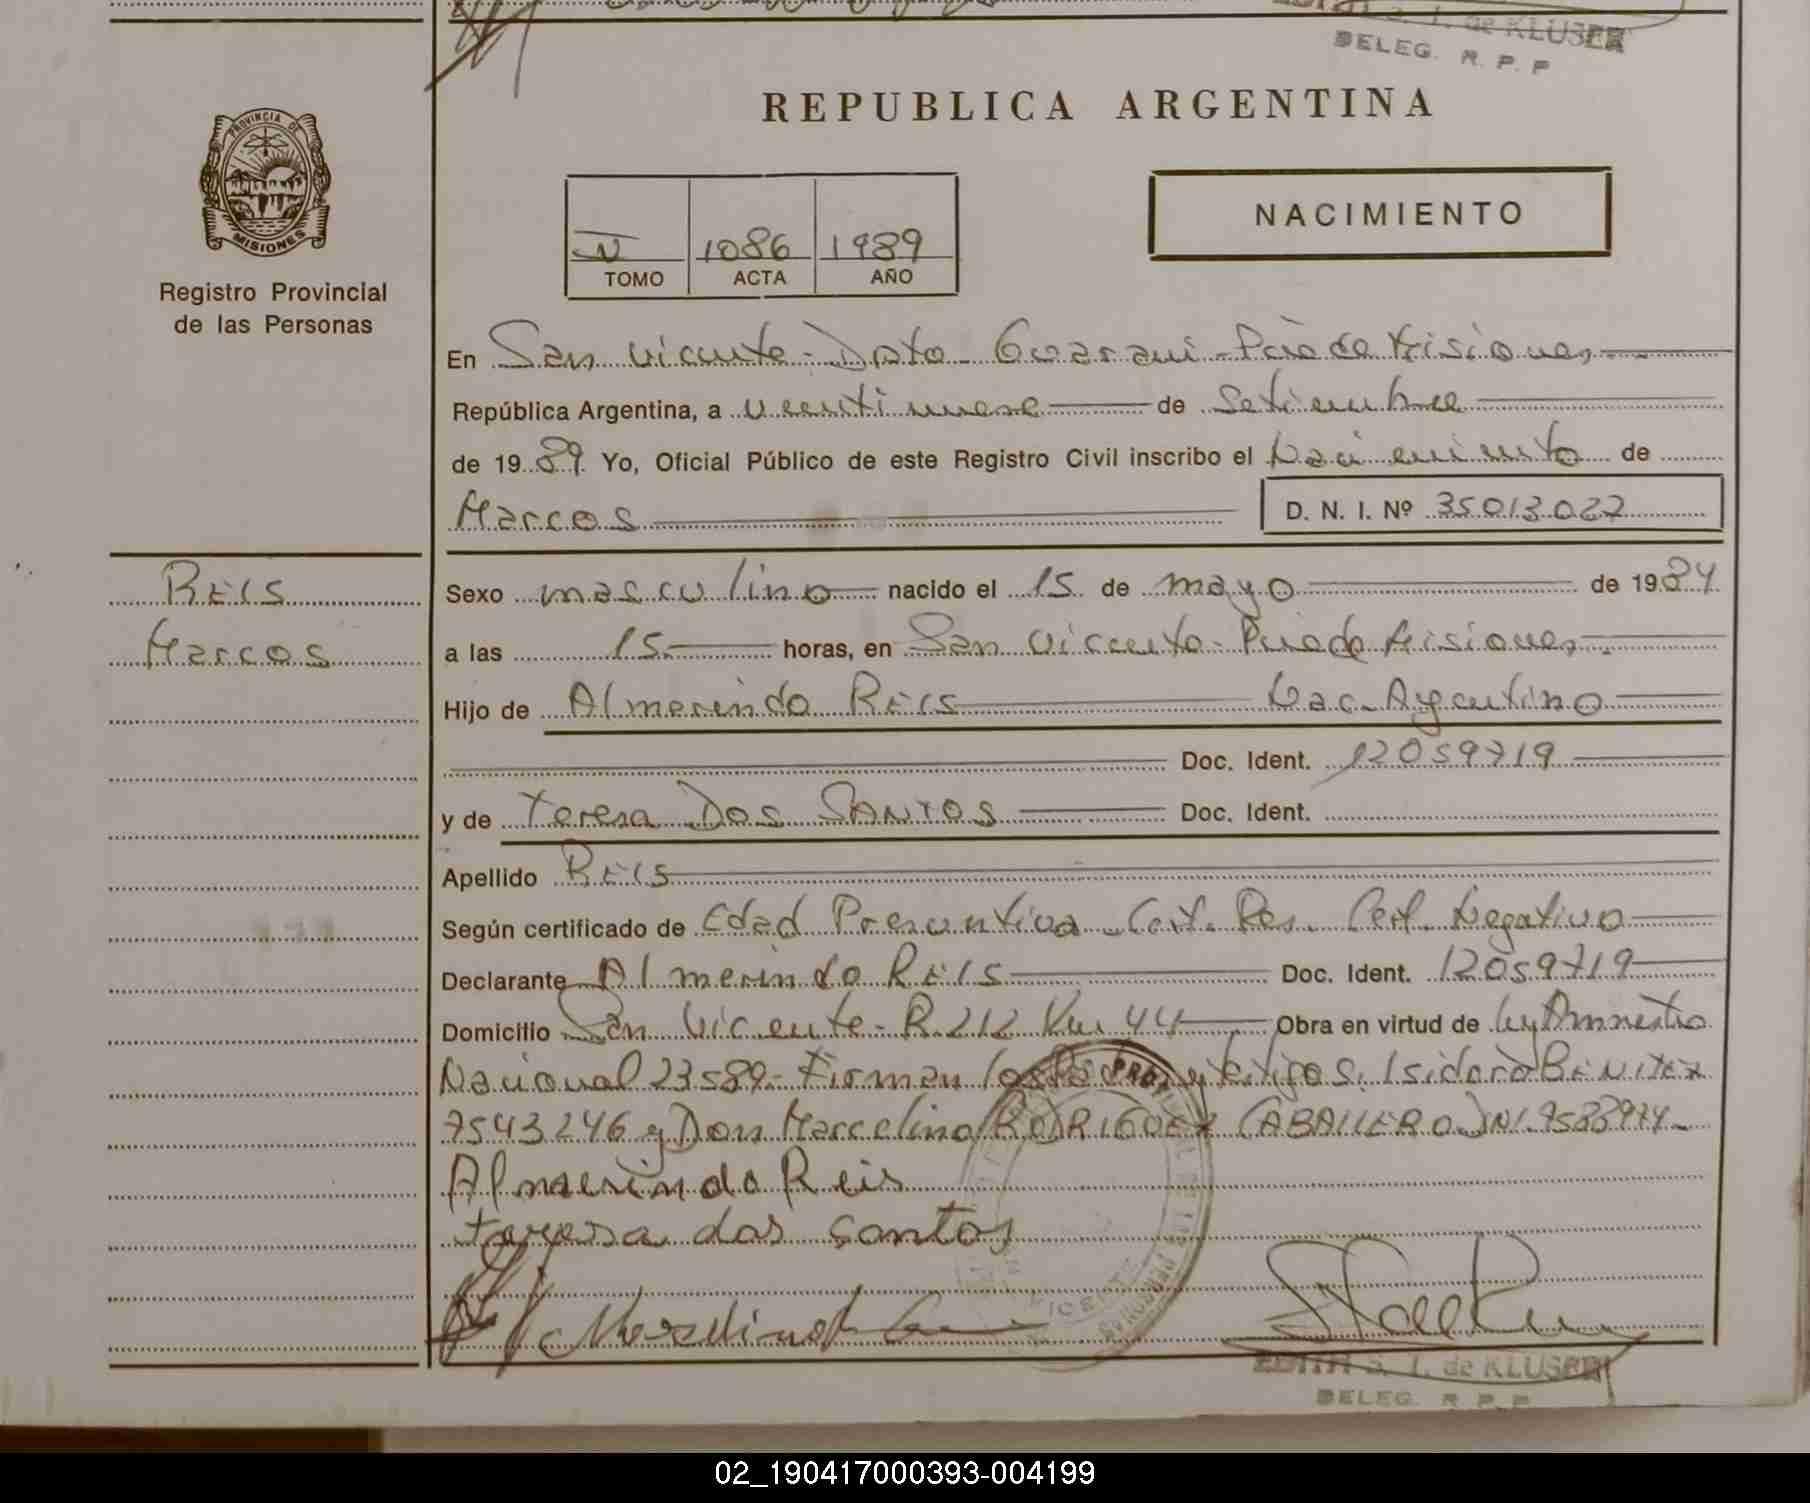 de KLUSER
DELEG. R. P. P
REPUBLICA ARGENTINA
PROVINCIA DE
MISIONES
Registro Provincial
de las Personas
NACIMIENTO
1086 1989
TOMO ACTA AÑO
En San Vicente - Dpto Guarani - Pcia de Misiones
República Argentina, a veintinueve de Setiembre
de 1989 Yo, Oficial Público de este Registro Civil inscribo el Nacimiento de
Marcos D. N. I. Nº 35013027
REIS
Marcos
Sexo masculino nacido el 15 de mayo de 1984
a las 15 horas, en San Vicente - Pcia de Misiones
Hijo de Almerindo REIS Nac. Argentino
Doc. Ident. 12059719
y de Teresa DOS SANTOS Doc. Ident.
Apellido REIS
Según certificado de Edad Presuntiva - Cert. Res. Cert. Negativo
Declarante Almerindo REIS Doc. Ident. 12059719
Domicilio San Vicente - R. 212 Km 44 Obra en virtud de Ley Amnestia
Nacional 23589 - Firman los Padres y testigos. Isidoro BENITEZ
7543246 y Don Marcelino RODRIGUEZ CABALLERO DNI. 7588974
Almerindo Reis
teresa dos santos
de KLUSER
DELEG. R. P. P
02_190417000393-004199